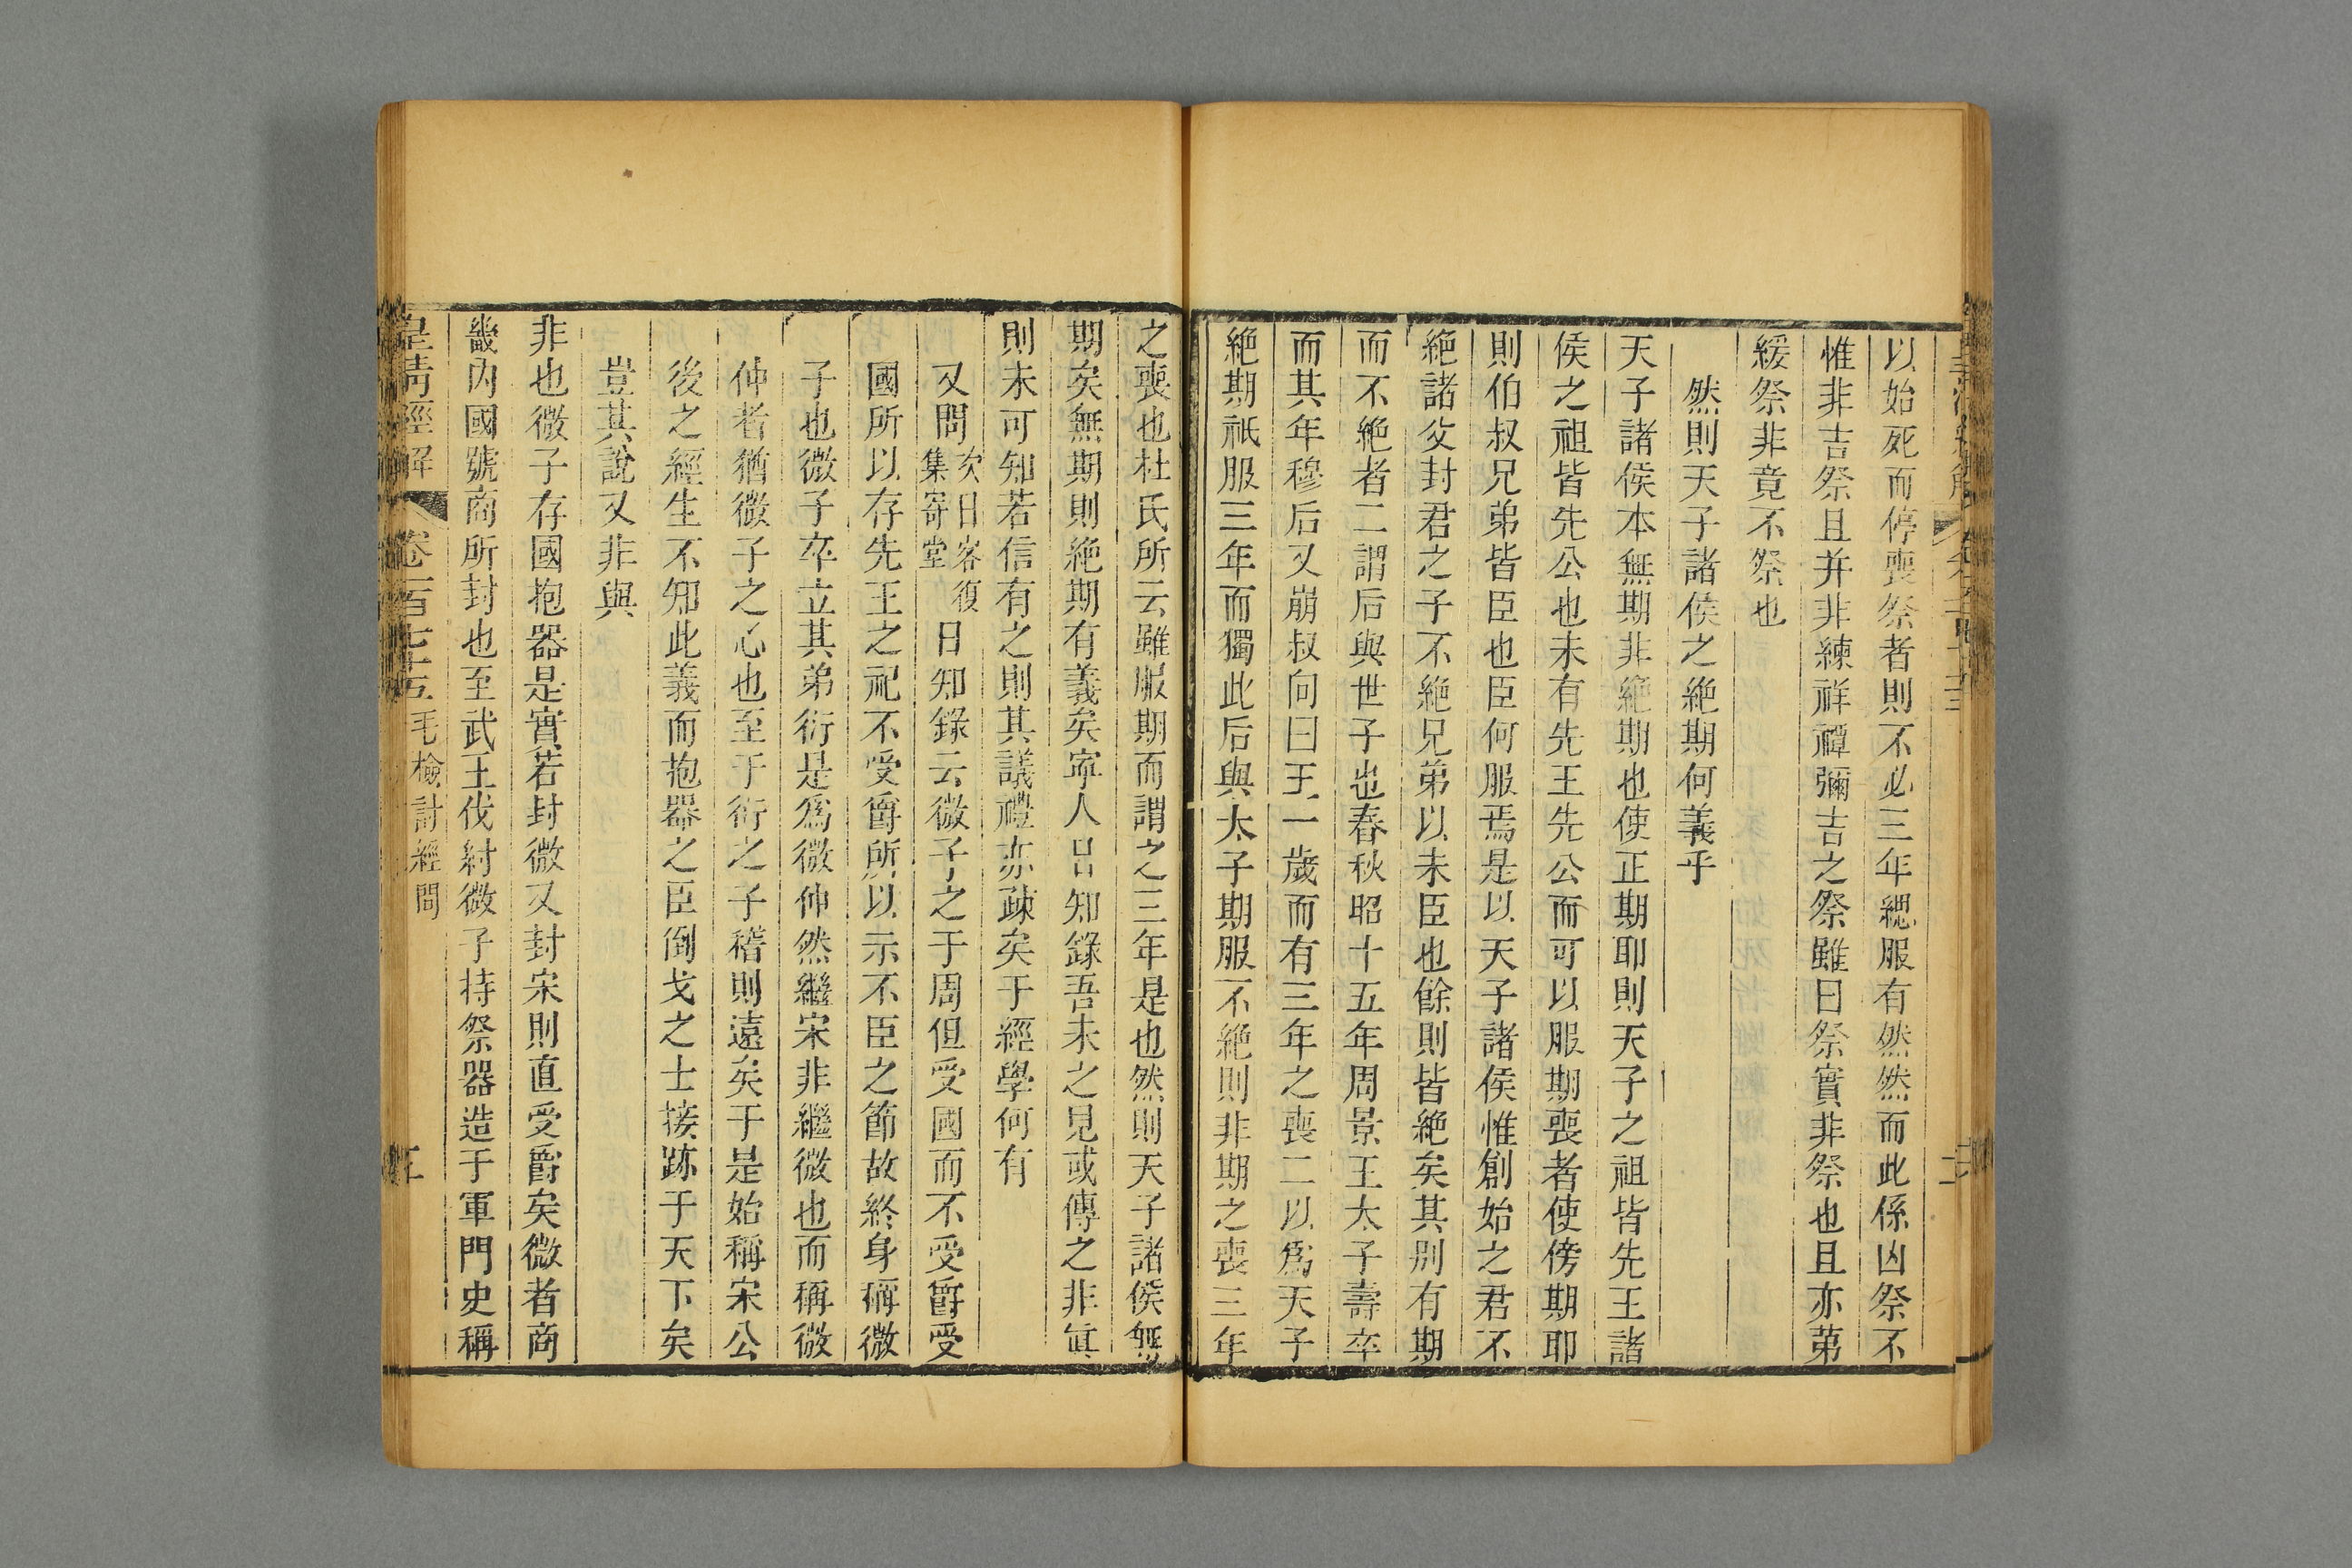 以始死而停喪祭者則不必三年緦服有然然而此係凶祭不
惟非吉祭且并非練祥禫彌吉之祭雖曰祭實非祭也且亦第
緩祭非竟不祭也
然則天子諸侯之絶期何義乎
天子諸侯本無期非絶期也使正期耶則天子之祖皆先王諸
侯之祖皆先公也未有先王先公而可以服期喪者使傍期耶
則伯叔兄弟皆臣也臣何服焉是以天子諸侯惟創始之君不
絶諸父封君之子不絶兄弟以未臣也餘則皆絶矣其別有期
而不絶者二謂后與世子也春秋昭十五年周景王太子壽卒
而其年穆后又崩叔向曰王一歲而有三年之喪二以爲天子
絶期祇服三年而獨此后與太子期服不絶則非期之喪三年
之喪也杜氏所云雖服期而謂之三年是也然則天子諸侯無
期矣無期則絶期有義矣寧人日知錄吾未之見或傳之非眞
則未可知若信有之則其議禮亦疎矣于經學何有
又問次日客復集寄堂日知錄云微子之于周但受國而不受爵受
國所以存先王之祀不受爵所以示不臣之節故終身稱微
子也微子卒立其弟衍是爲微仲然繼宋非繼微也而稱微
仲者猶微子之心也至于衍之子稽則遠矣于是始稱宋公
後之經生不知此義而抱器之臣倒戈之士接跡于天下矣
豈其說又非與
非也微子存國抱器是實若封微又封宋則直受爵矣微者商
畿內國號商所封也至武王伐紂微子持祭器造于軍門史稱
皇清經解 卷一百七十五 毛檢討經問 五